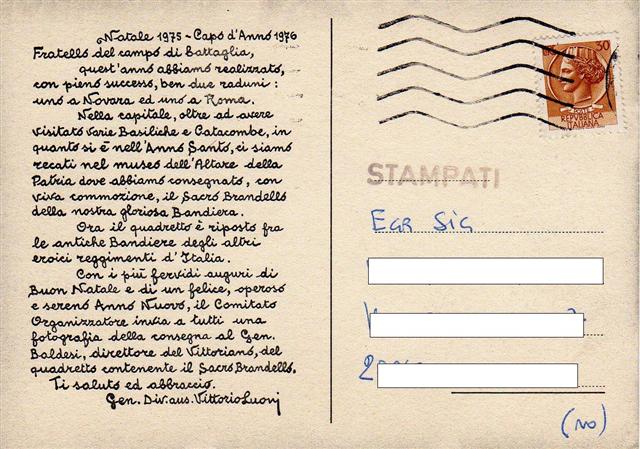 Natale 1975 - Capo d'Anno 1976
Fratello del campo di Battaglia,
quest'anno abbiamo realizzato,
con pieno successo, ben due raduni:
uno a Novara ed uno a Roma.
Nella capitale, oltre ad avere
visitato varie Basiliche e Catacombe, in
quanto si è nell'Anno Santo, ci siamo
recati nel museo dell'Altare della
Patria dove abbiamo consegnato, con
viva commozione, il Sacro Brandello
della nostra gloriosa Bandiera.
Ora il quadretto è riposto fra
le antiche Bandiere degli altri
eroici reggimenti d'Italia.
Con i più fervidi auguri di
Buon Natale e di un felice, operoso
e sereno Anno Nuovo, il Comitato
Organizzatore invia a tutti una
fotografia della consegna al Gen.
Baldesi, direttore del Vittoriano, del
quadretto contenente il Sacro Brandello.
Ti saluto ed abbraccio.
Gen. Div. aus. Vittorio Luoni
30
POSTE
REPVBBLICA
ITALIANA
STAMPATI
EGR SIG
(NO)